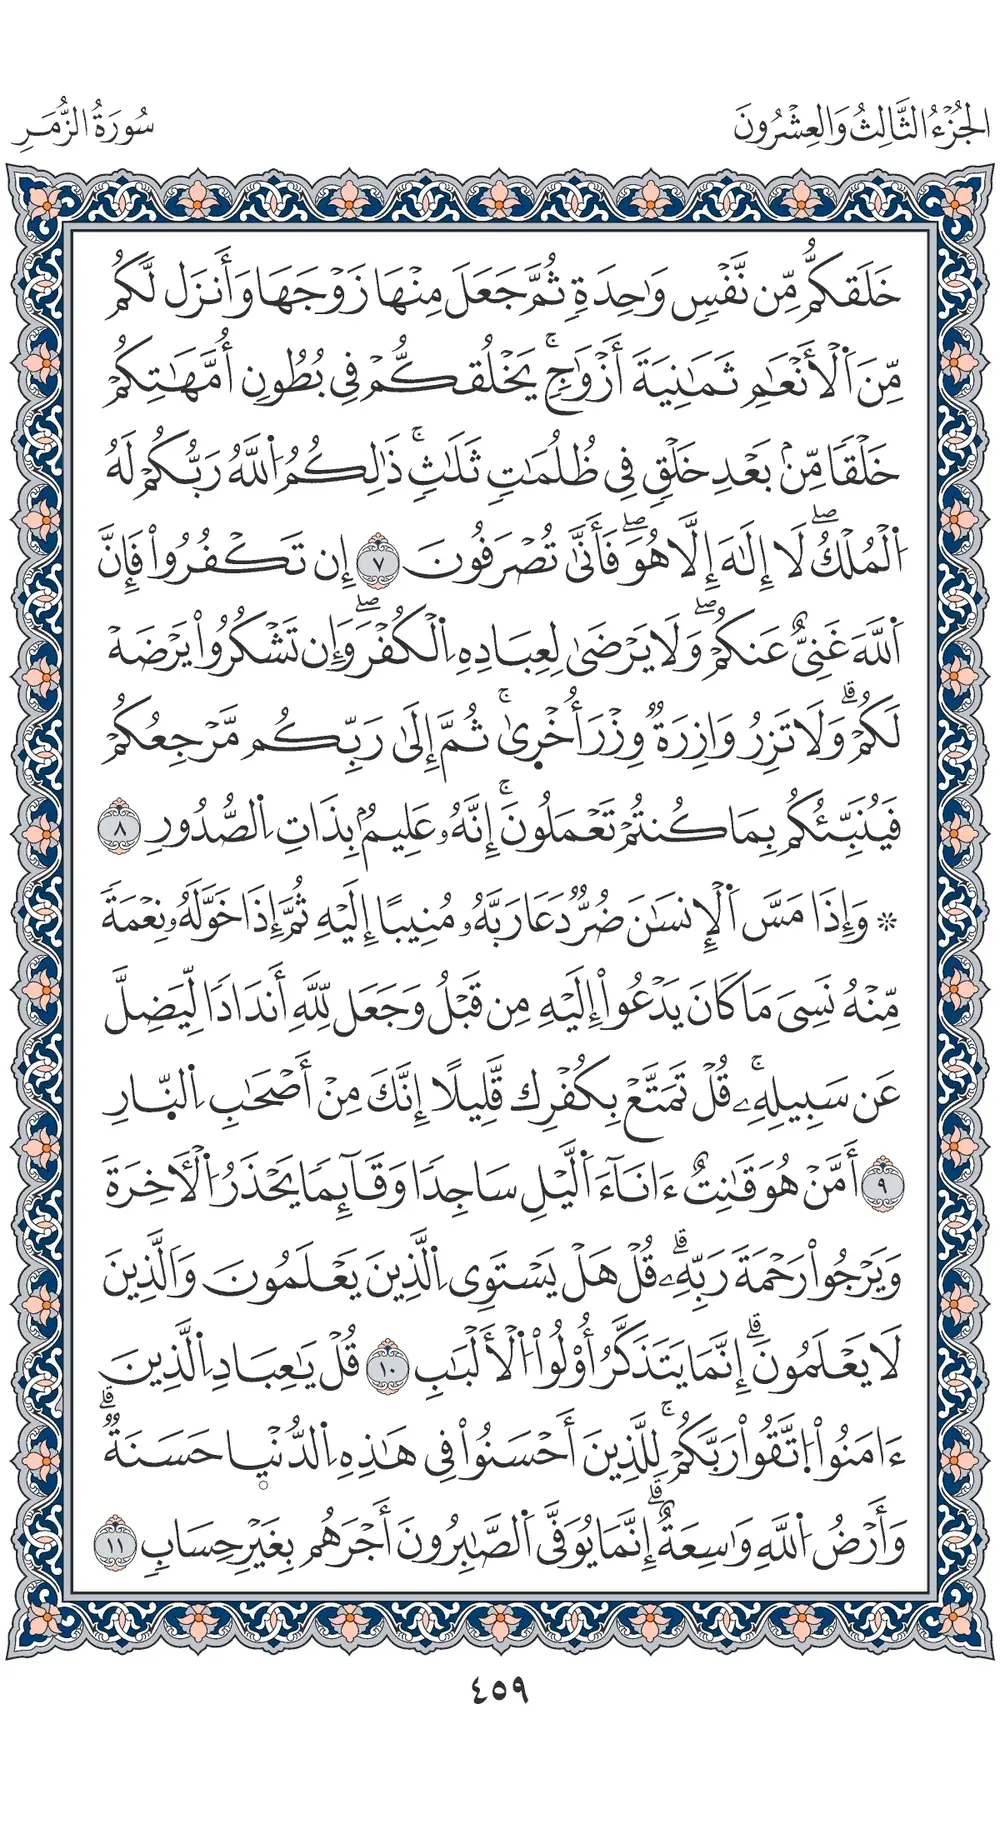 الجُزْءُ الثَّالِثُ وَالعِشْرُونَ
سُورَةُ الزُّمَرِ
خَلَقَكُم مِّن نَّفْسٍ وَٰحِدَةٍ ثُمَّ جَعَلَ مِنْهَا زَوْجَهَا وَأَنزَل لَّكُم
مِّنَ اَ۬لْأَنْعَٰمِ ثَمَٰنِيَةَ أَزْوَٰجٖۚ يَخْلُقكُّمْ فِي بُطُونِ أُمَّهَٰتِكُمْ
خَلْقٗا مِّنۢ بَعْدِ خَلْقٖ فِي ظُلُمَٰتٖ ثَلَٰثٖۚ ذَٰلِكُمُ اُ۬للَّهُ رَبُّكُمْ لَهُ
اُ۬لْمُلْكُۖ لَا إِلَٰهَ إِلَّا هُوَۖ فَأَنَّىٰ تُصْرَفُونَ ٧ إِن تَكْفُرُواْ فَإِنَّ
اَ۬للَّهَ غَنِيٌّ عَنكُمْۖ وَلَا يَرْضَىٰ لِعِبَادِهِ اِ۬لْكُفْرَۖ وَإِن تَشْكُرُواْ يَرْضَهْ
لَكُمْۗ وَلَا تَزِرُ وَازِرَةٞ وِزْرَ أُخْر۪ىٰۚ ثُمَّ إِلَىٰ رَبِّكُم مَّرْجِعُكُمْ
فَيُنَبِّئُكُم بِمَا كُنتُمْ تَعْمَلُونَۚ إِنَّهُۥ عَلِيمُۢ بِذَاتِ اِ۬لصُّدُورِ ٨
۞ وَإِذَا مَسَّ اَ۬لْإِنسَٰنَ ضُرّٞ دَعَا رَبَّهُۥ مُنِيبًا إِلَيْهِ ثُمَّ إِذَا خَوَّلَهُۥ نِعْمَةٗ
مِّنْهُ نَسِيَ مَا كَانَ يَدْعُواْ إِلَيْهِ مِن قَبْلُ وَجَعَل لِّلَّهِ أَندَادٗا لِّيَضِلَّ
عَن سَبِيلِهِۦۚ قُلْ تَمَتَّعْ بِكُفْرِك قَّلِيلًا إِنَّكَ مِنْ أَصْحَٰبِ اِ۬لنّ۪ارِ
٩ أَمَّنْ هُوَ قَٰنِتٌ ءَانَآءَ اَ۬لَّيْلِ سَاجِدٗا وَقَآئِمٗا يَحْذَرُ اُ۬لْأٓخِرَةَ
وَيَرْجُواْ رَحْمَةَ رَبِّهِۦۗ قُلْ هَلْ يَسْتَوِي اِ۬لَّذِينَ يَعْلَمُونَ وَالَّذِينَ
لَا يَعْلَمُونَۗ إِنَّمَا يَتَذَكَّرُ أُوْلُواْ اُ۬لْأَلْبَٰبِ ١٠ قُلْ يَٰعِبَادِ اِ۬لَّذِينَ
ءَامَنُواْ اُ۪تَّقُواْ رَبَّكُمْۚ لِلَّذِينَ أَحْسَنُواْ فِي هَٰذِهِ اِ۬لدُّنْي۪ا حَسَنَةٞۗ
وَأَرْضُ اُ۬للَّهِ وَٰسِعَةٌۗ إِنَّمَا يُوَفَّى اَ۬لصَّٰبِرُونَ أَجْرَهُم بِغَيْرِ حِسَابٖ ١١
٤٥٩